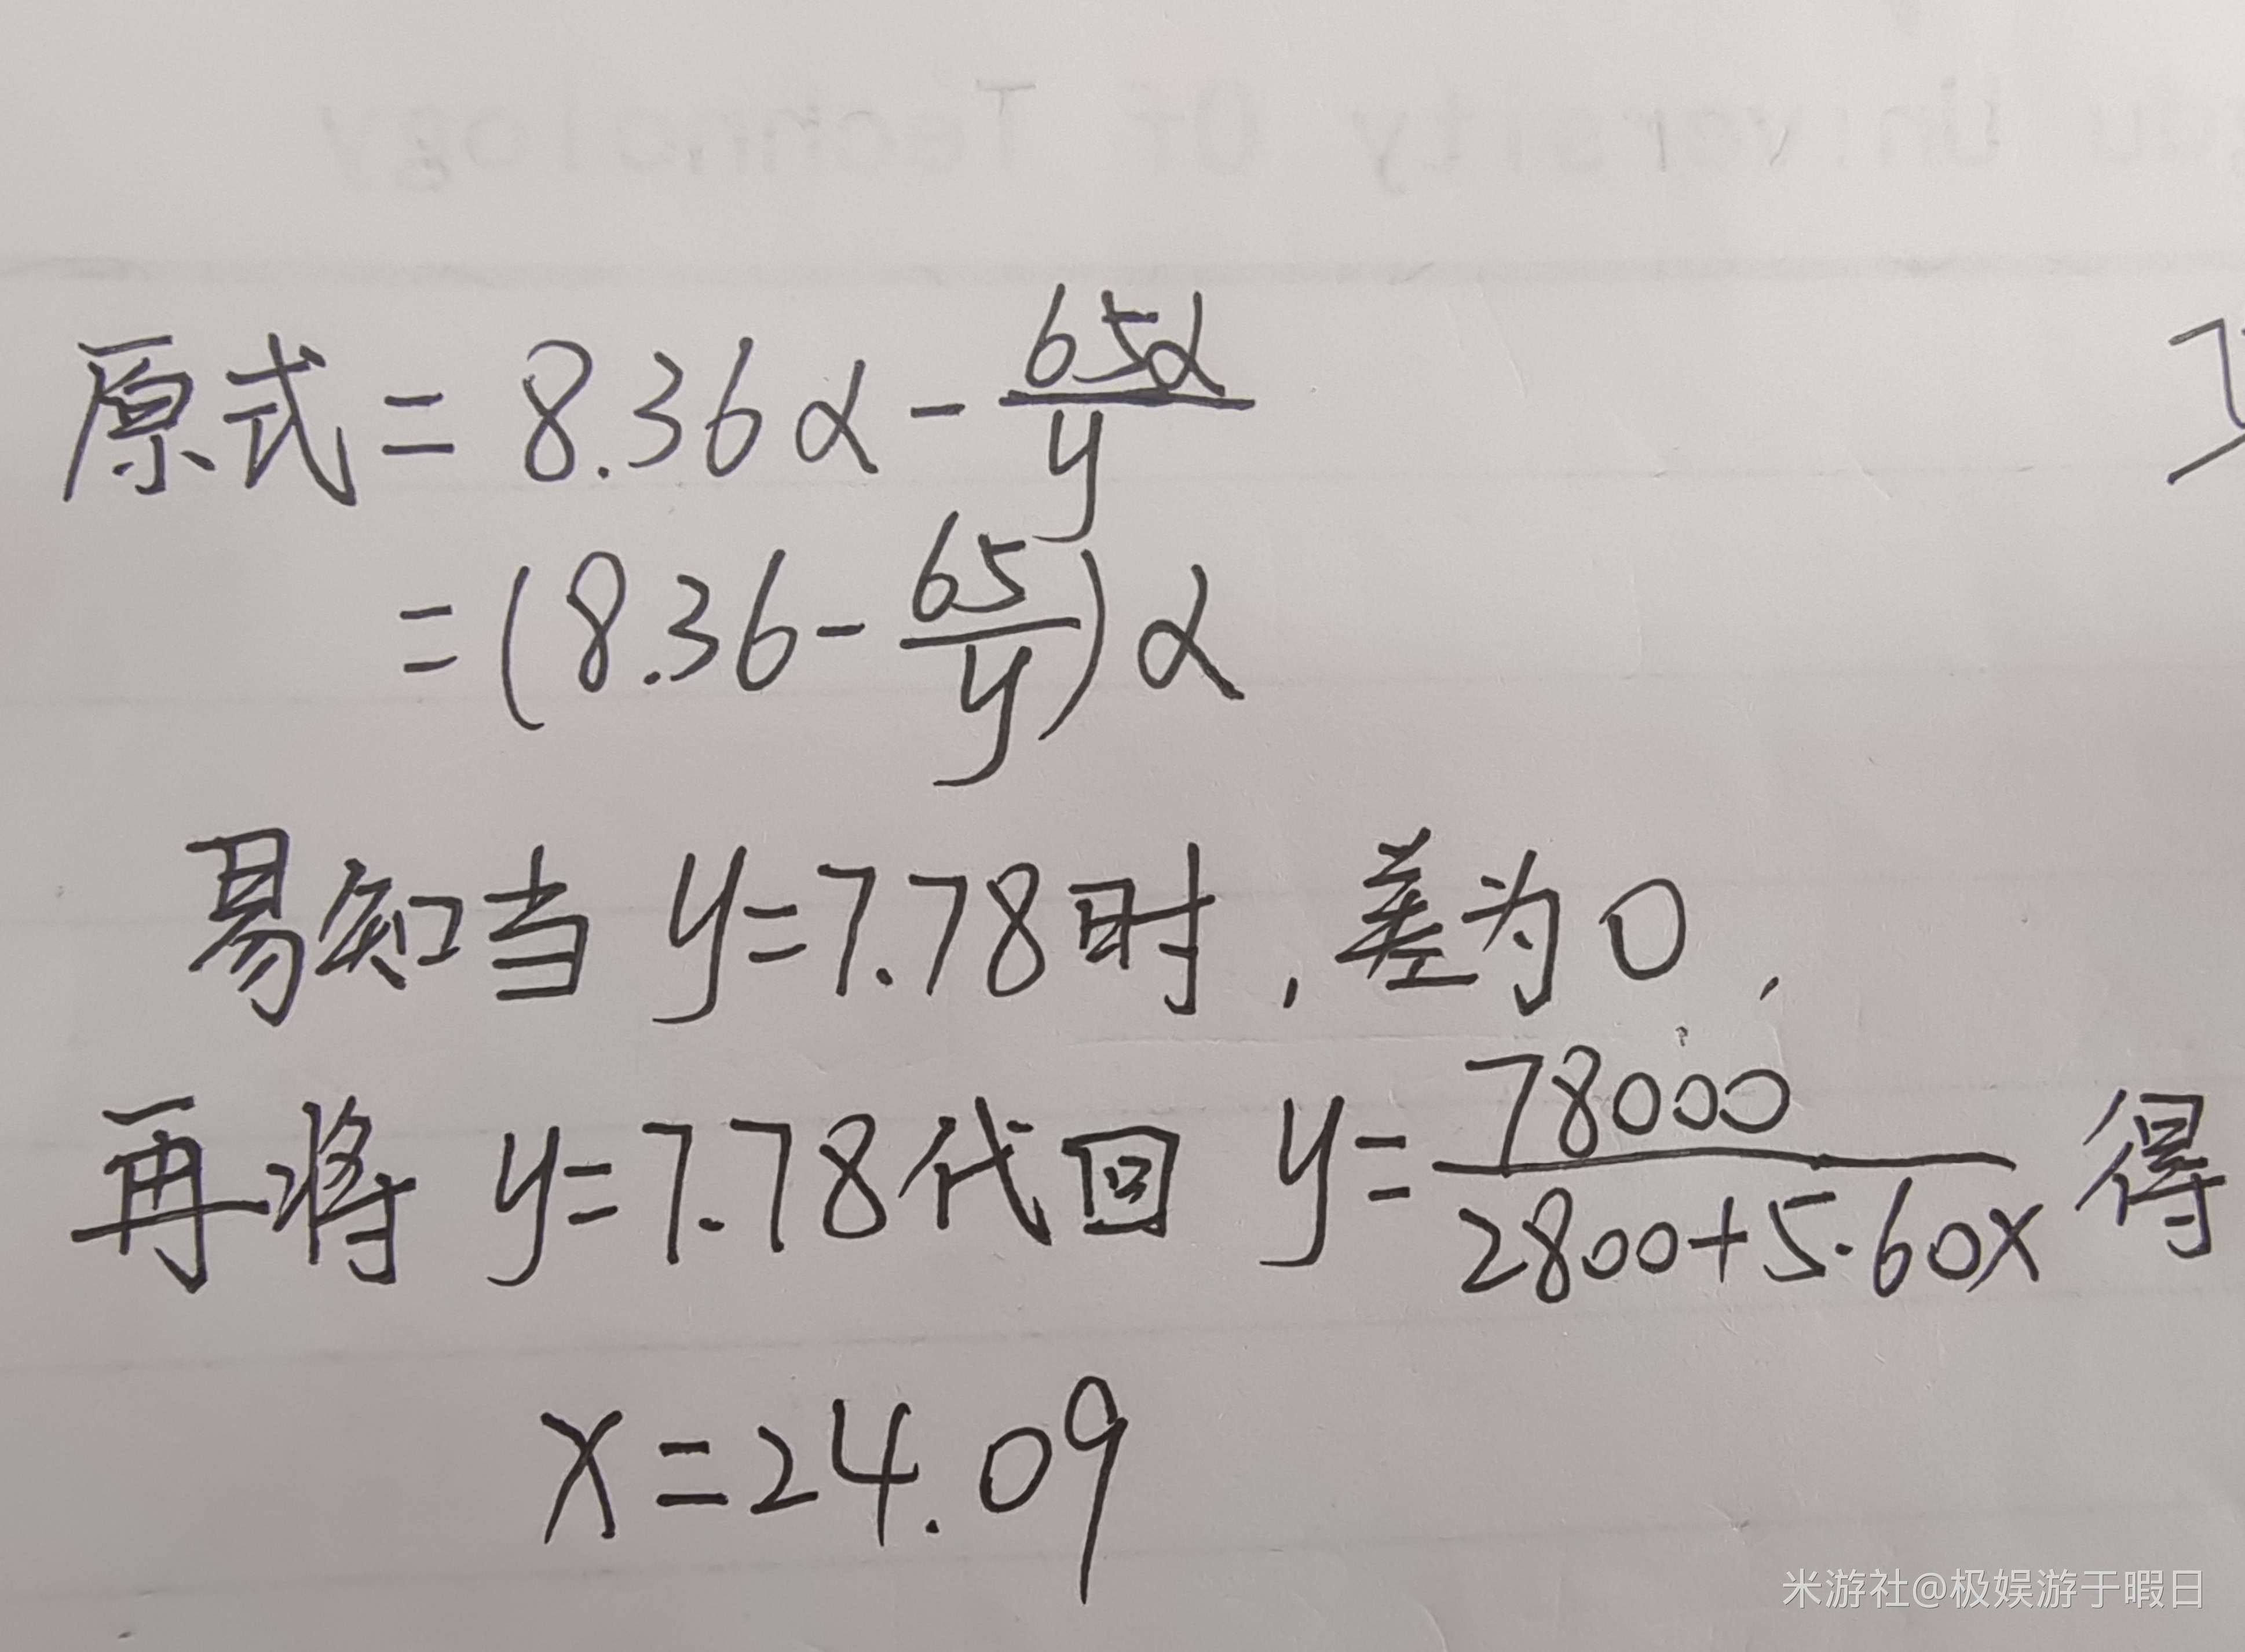 University Of Technology
原式 = 8.36α - 65α/y
= (8.36 - 65/y)α
易知当 y=7.78时,差为0,
再将 y=7.78代回 y= 78000/2800+5.60x 得
x=24.09
米游社@极娱游于暇日